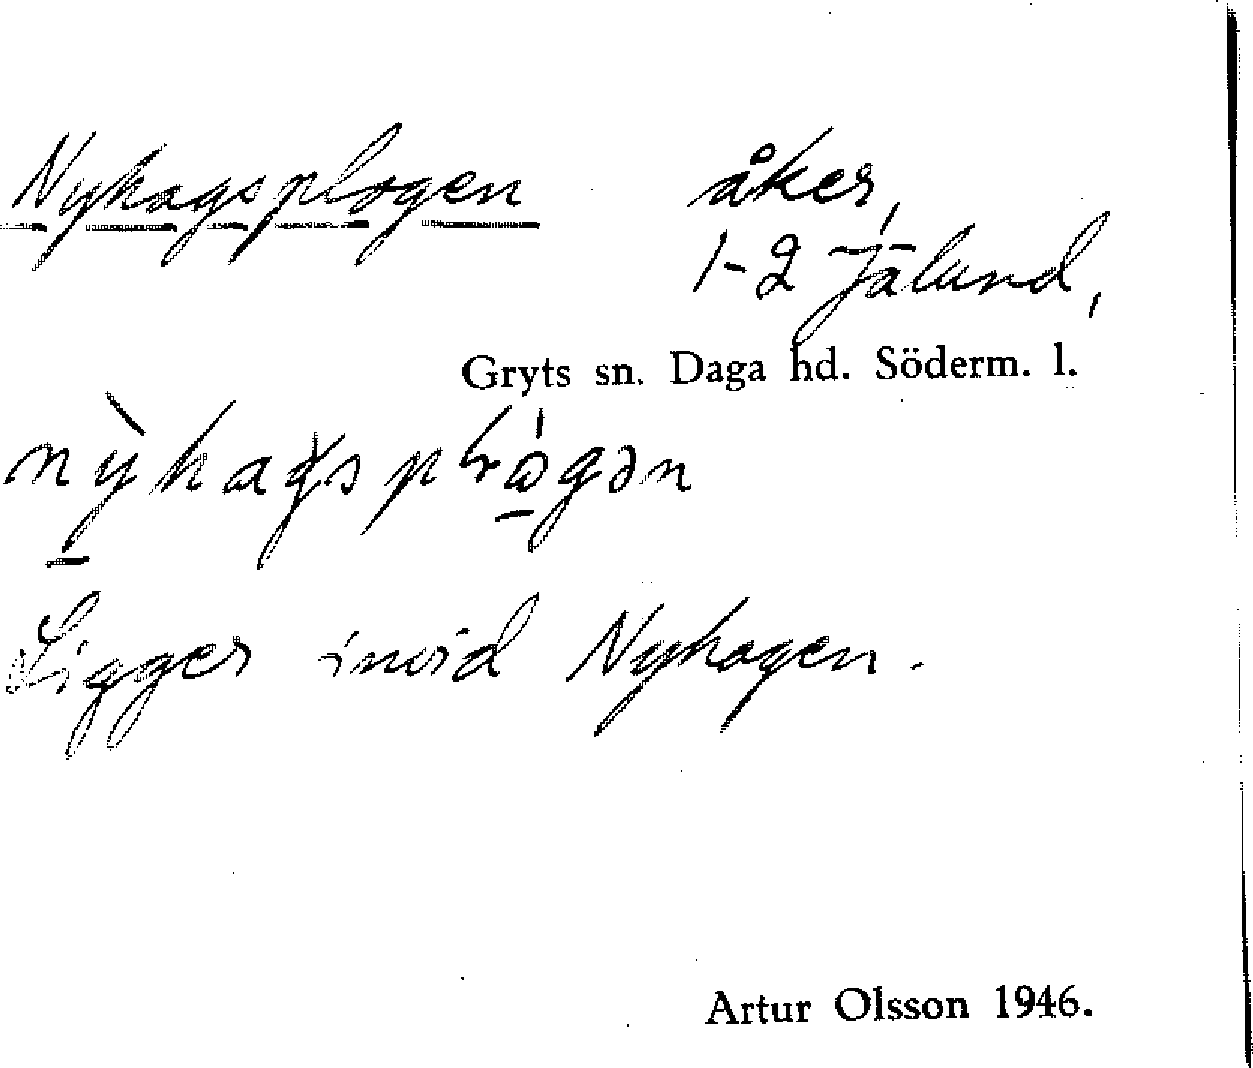 Nyhagsplogen åker,
1-2 Jälund,
Gryts sn. Daga hd. Söderm. l.
Ligger invid Nyhagen.
Artur Olsson 1946.